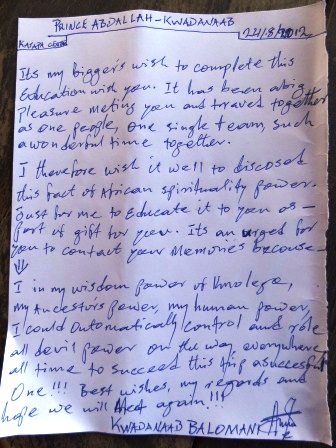 PRINCE ABDALLAH - KWADANAAB
KAYAPA 24/8/2012
Its my biggers wish to complete this
Education wish you. It has been a big
Pleasure meting you and traved together
as one people, one single team, such
a wonderful time together.
I therefore wish it well to discosed
this fact of African spirituality power.
Just for me to Educate it to you as -
Part of gift for you. Its an urged for
you to contact your Memories because -
I in my wisdom power of
my Ancestors power, my human power,
I could automatically control and role
all devil power on the way everywhere
all time to succeed this trip a successful
One!!! Best wishes, my regards and
hope we will again!!!
KWADANAAB BALOMANI